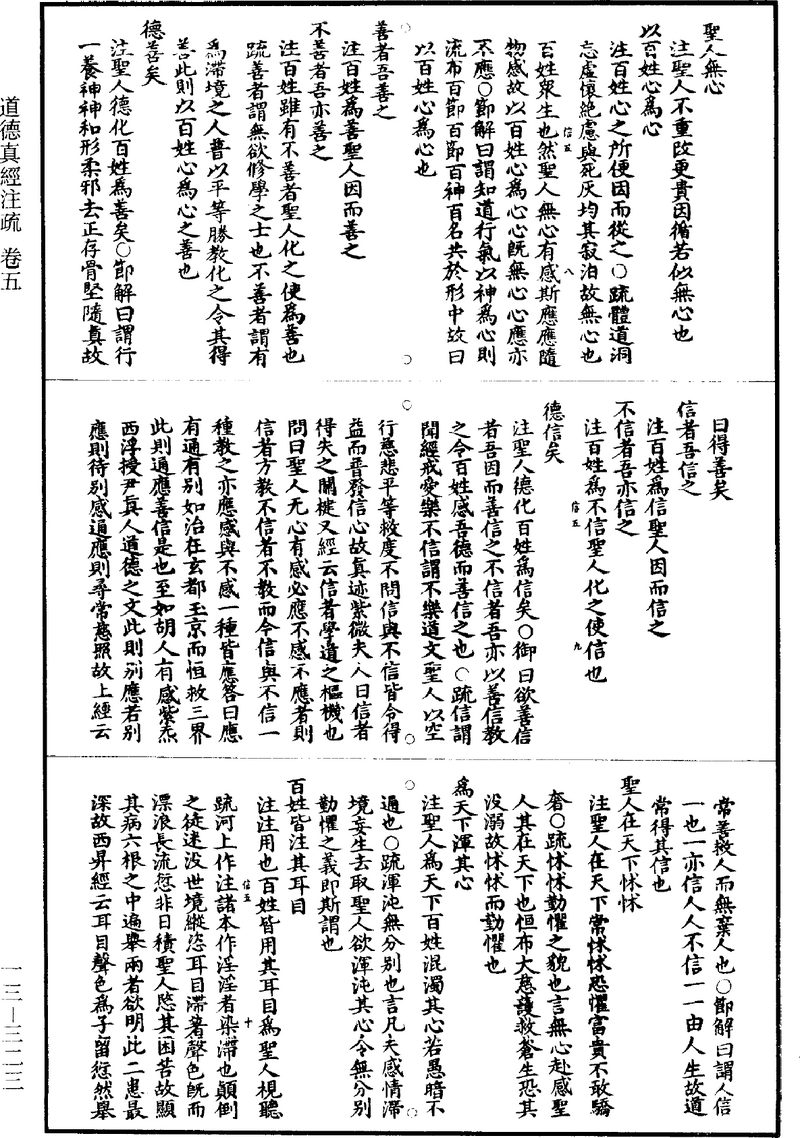 道德真經注疏 卷五
一三—三二三
聖人無心
注聖人不重改更貴因循若似無心也
以百姓心為心
注百姓心之所便因而從之○疏體道洞
忘虛懷絶慮與死灰均其寂泊故無心也
信五 八
百姓衆生也然聖人無心有感斯應應隨
物感故以百姓心為心心既無心心應亦
不應○節解曰謂知道行氣以神為心則
流布百節百節百神百名共於形中故曰
以百姓心為心也
善者吾善之
注百姓為善聖人因而善之
不善者吾亦善之
注百姓雖有不善者聖人化之使為善也
疏善者謂無欲修學之士也不善者謂有
為滯境之人普以平等勝教化之令其得
善此則以百姓心為心之善也
德善矣
注聖人德化百姓為善矣○節解曰謂行
一養神神和形柔邪去正存骨堅隨真故
曰得善矣
信者吾信之
注百姓為信聖人因而信之
不信者吾亦信之
信五 九
注百姓為不信聖人化之使信也
德信矣
注聖人德化百姓為信矣○御曰欲善信
者吾因而善信之不信者吾亦以善信教
之令百姓感吾德而善信之也○疏信謂
聞經戒愛樂不信謂不樂道文聖人以空
行慈悲平等救度不問信與不信皆令得
益而普發信心故真迹紫微夫人曰信者
得失之關楗又經云信者學道之樞機也
問曰聖人无心有感必應不感不應者則
信者方教不信者不教而今信與不信一
種教之亦應感與不感一種皆應答曰應
有通有別如治在玄都玉京而恒救三界
此則通應善信是也至如胡人有感紫炁
西浮授尹真人道德之文此則別應若別
應則待別感通應則尋常慈照故上經云
常善救人而無棄人也○節解曰謂人信
一也一亦信人人不信一一由人生故道
常得其信也
聖人在天下怵怵
注聖人在天下常怵怵恐懼富貴不敢驕
奢○疏怵怵勤懼之貌也言無心赴感聖
人其在天下也恒布大慈護救蒼生恐其
没溺故怵怵而勤懼也
為天下渾其心
注聖人為天下百姓混濁其心若愚暗不
通也○疏渾沌無分別也言凡夫感情滯
境妄生去取聖人欲渾沌其心令無分別
勤懼之義即斯謂也
百姓皆注其耳目
注注用也百姓皆用其耳目為聖人視聽
信五 十
疏河上作注諸本作淫淫者染滯也顛倒
之徒迷没世境縱恣耳目滯著聲色既而
漂浪長流愆非日積聖人愍其困苦故顯
其病六根之中遍舉兩者欲明此二患最
深故西昇經云耳目聲色為子留愆然舉